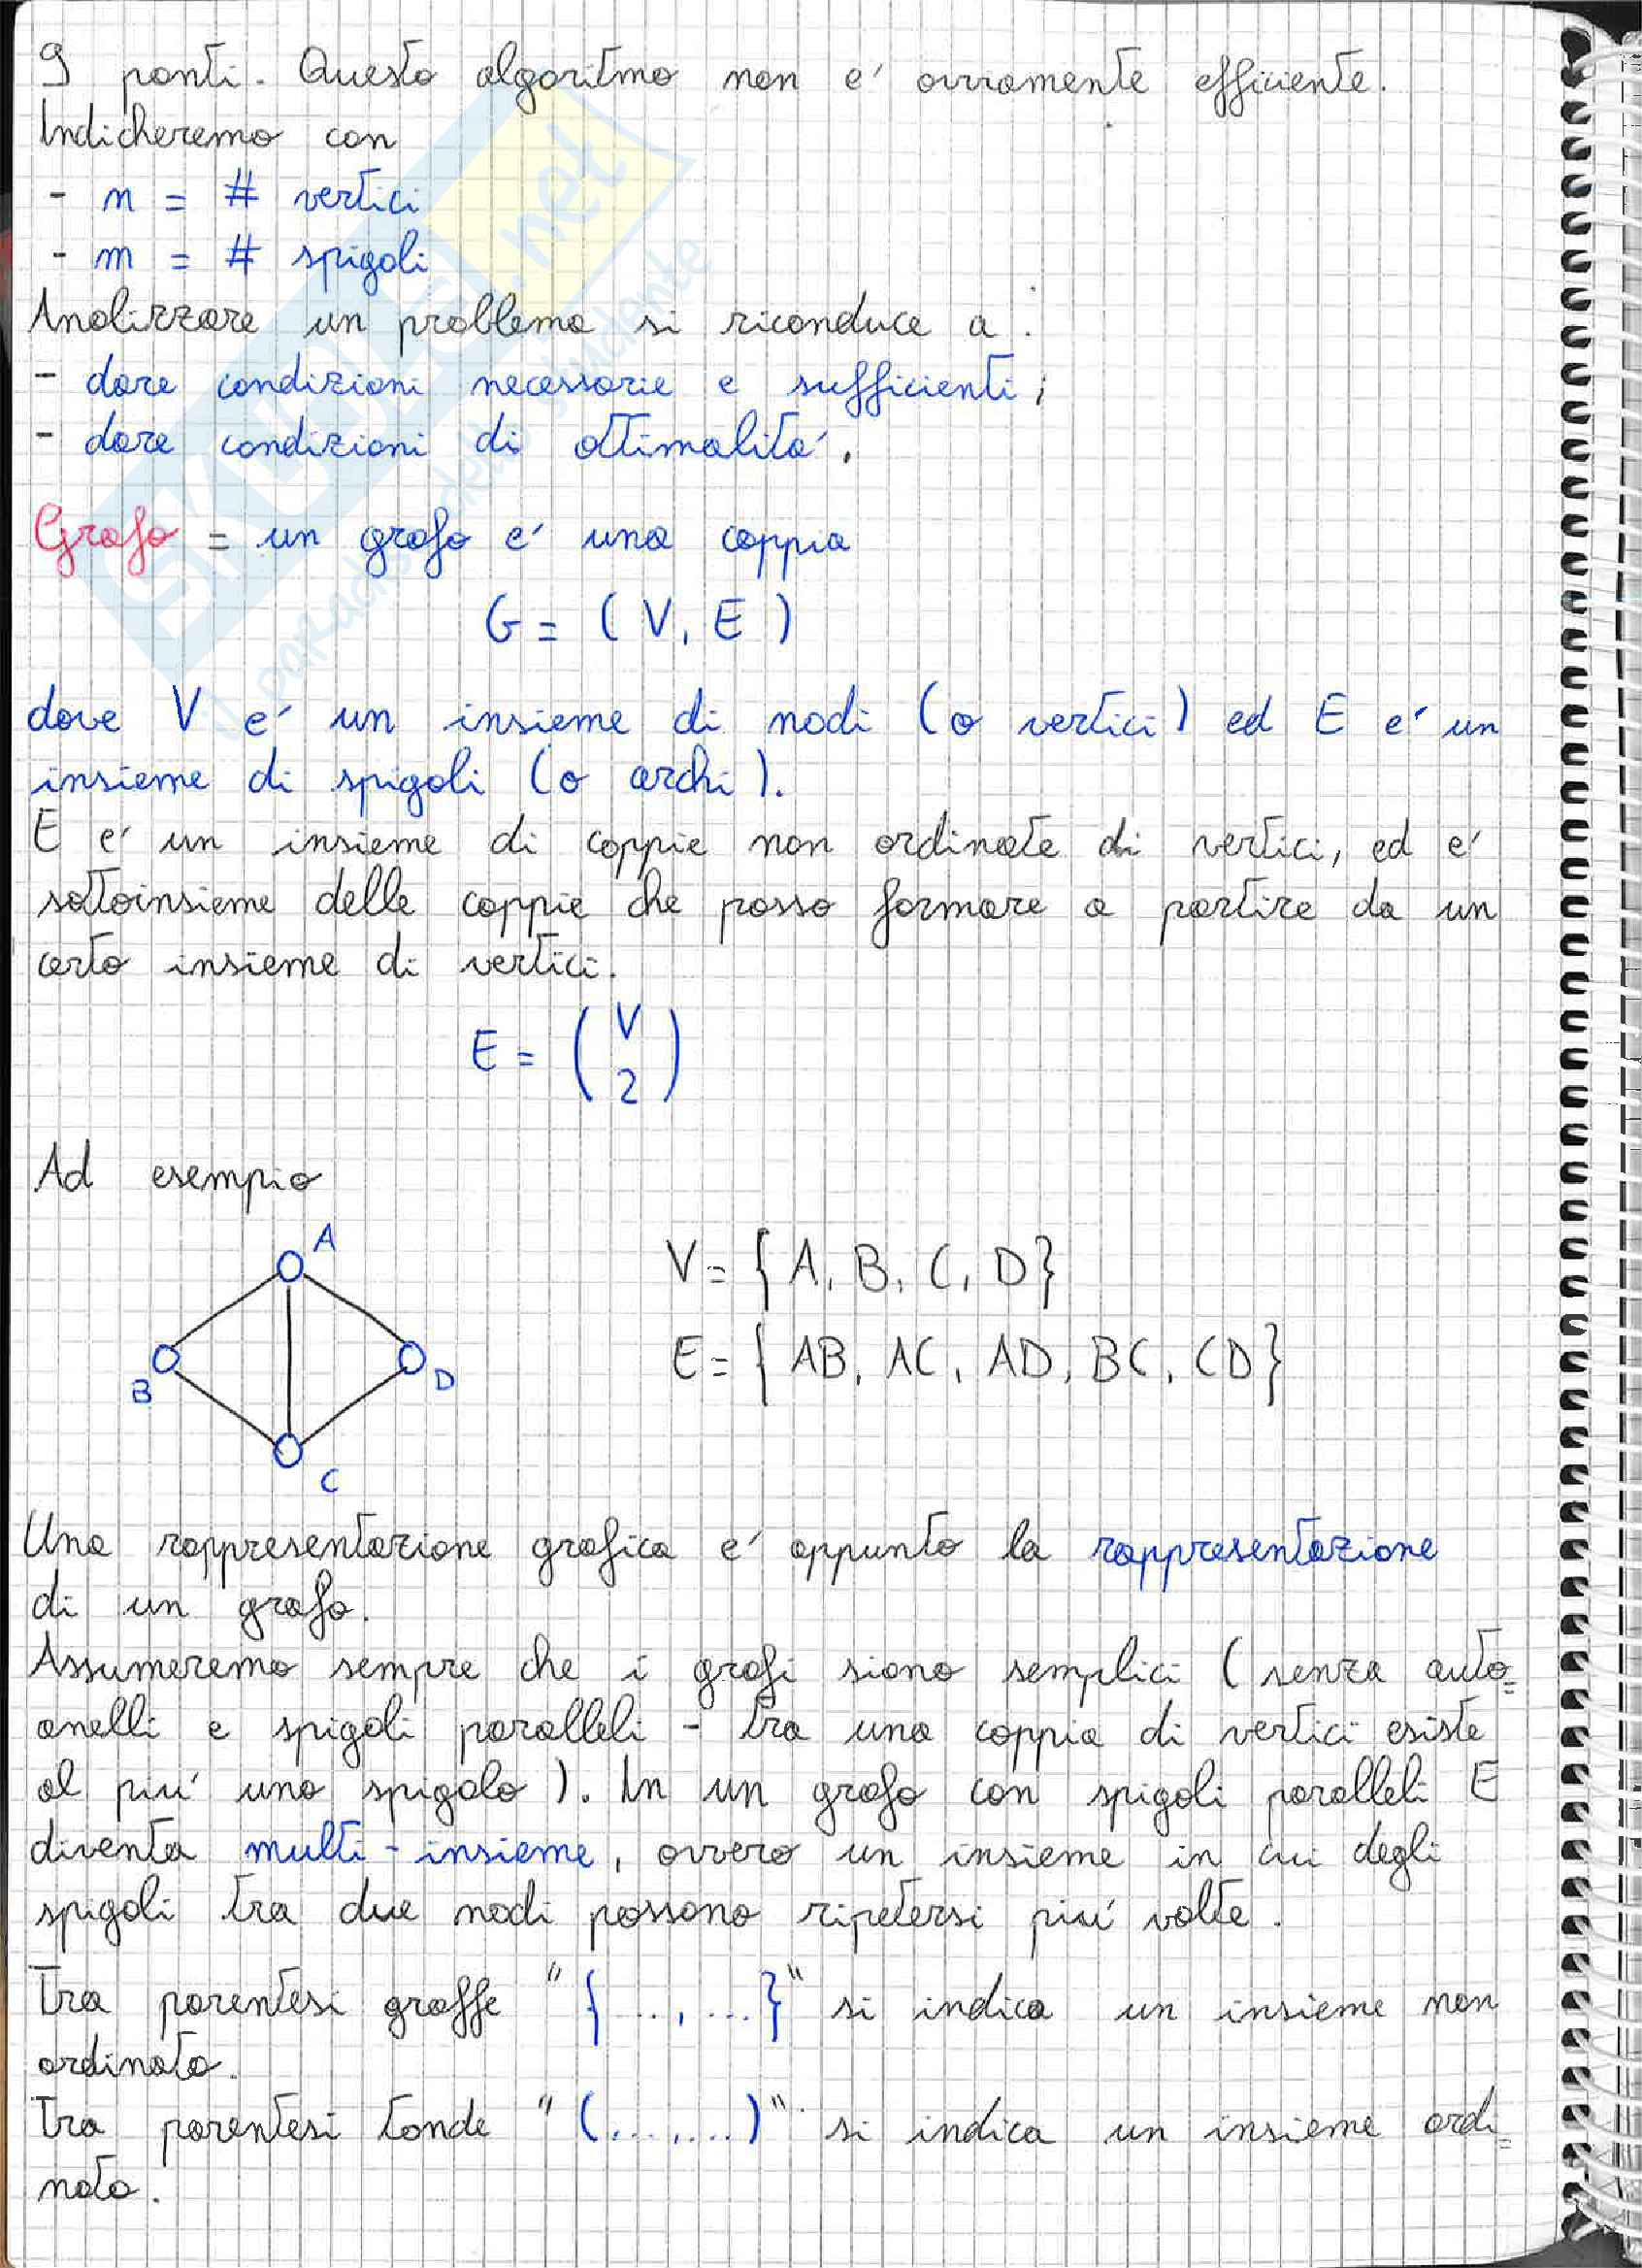 9 ponti. Questo algoritmo non e' ovviamente efficiente.
Indicheremo con
- n = # vertici
- m = # spigoli
Analizzare un problema si riconduce a:
- dare condizioni necessarie e sufficienti;
- dare condizioni di ottimalita'.
Grafo = un grafo e' una coppia
G = (V, E)
dove V e' un insieme di nodi (o vertici) ed E e' un
insieme di spigoli (o archi).
E e' un insieme di coppie non ordinate di vertici, ed e'
sottoinsieme delle coppie che posso formare a partire da un
certo insieme di vertici.
E = (V 2)
Ad esempio
A
B
D
C
V = {A, B, C, D}
E = {AB, AC, AD, BC, CD}
Una rappresentazione grafica e' appunto la rappresentazione
di un grafo.
Assumeremo sempre che i grafi siano semplici (senza auto=
anelli e spigoli paralleli - tra una coppia di vertici esiste
al piu' uno spigolo). In un grafo con spigoli paralleli E
diventa multi-insieme, ovvero un insieme in cui degli
spigoli tra due nodi possono ripetersi piu' volte.
Tra parentesi graffe "{...,...}" si indica un insieme non
ordinato.
Tra parentesi tonde "(...,...)" si indica un insieme ordi=
nato.
SKUOLA.net